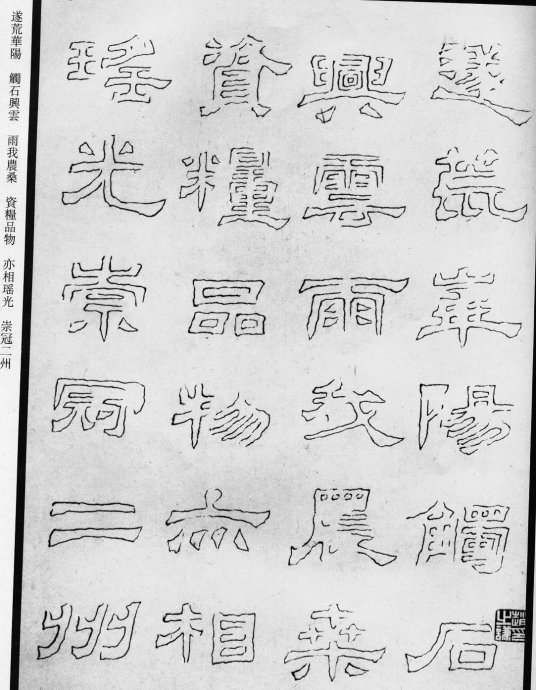 遂荒華陽觸石
興雲雨我農桑
資糧品物亦相
瑤光崇冠二州
遂荒華陽　觸石興雲　雨我農桑　資糧品物　亦相瑶光　崇冠二州